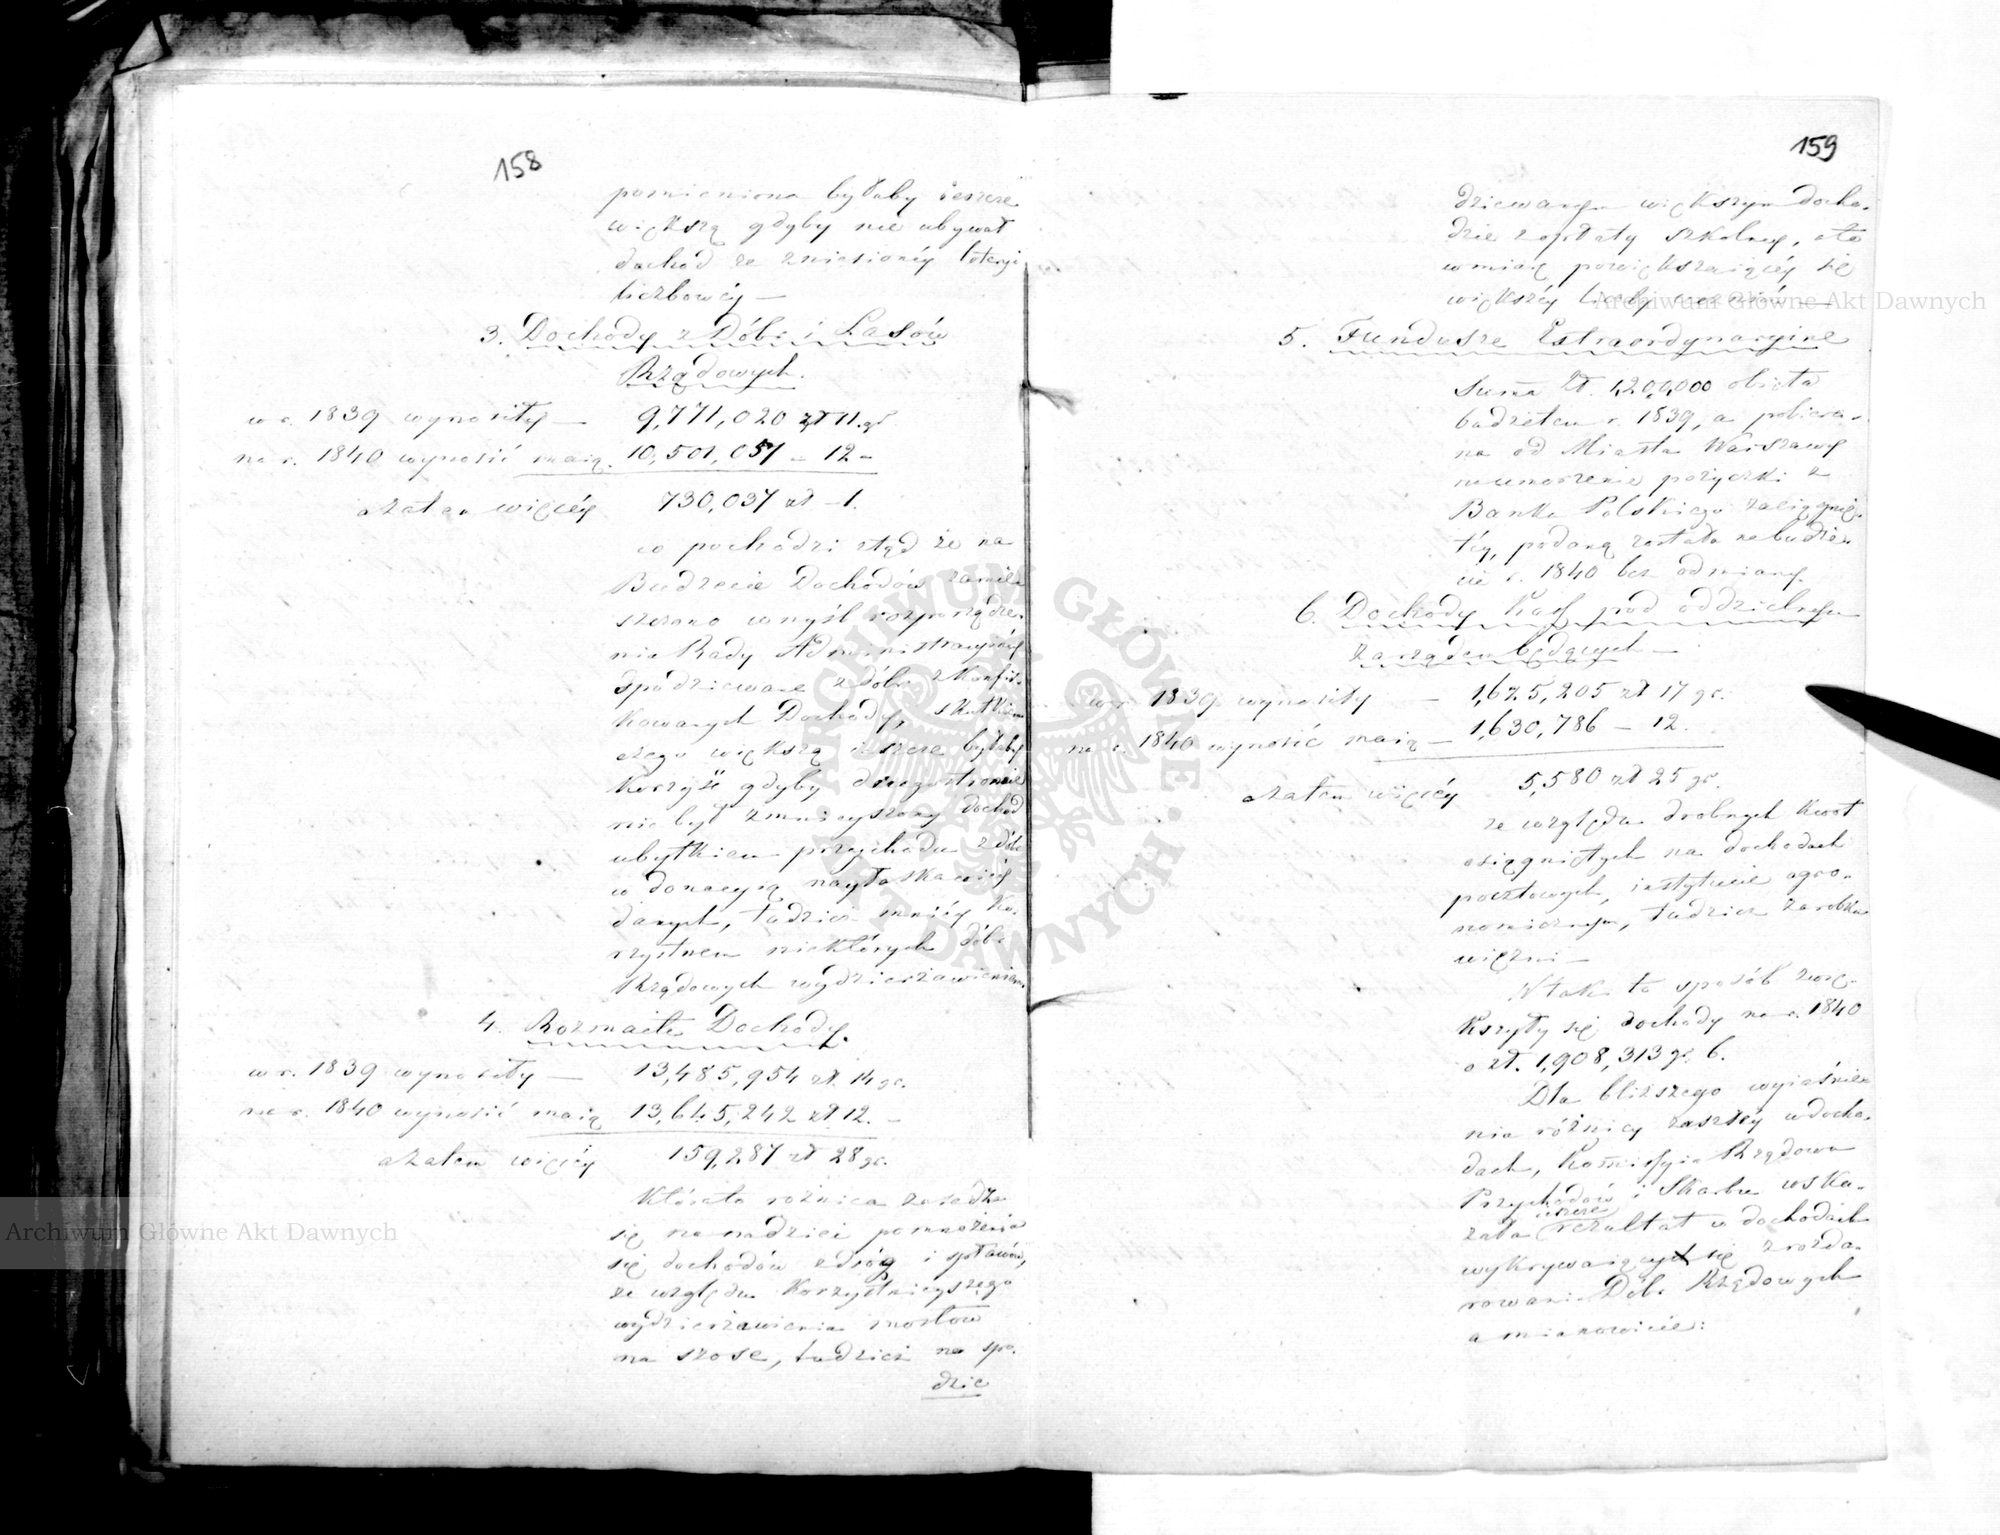 158
pomieniona byłaby ieszcze
większą gdyby nie ubywał
dochód ze zniesionéy loteryi
liczbowéy —
3. Dochody z Dóbr i Lasów
Rządowych.
w r. 1839 wynosiły — 9,771,020 zł 11. gr
na r. 1840 wynosić maią. 10,501,057 – 12 –
a zatem więcéy 730,037 zł – 1.
co pochodzi ztąd że na
Budżecie Dochodów zamie-
szczono w myśl rozporządze-
nia Rady Administracyinéy
spodziewane z dóbr skonfis-
kowanych Dochody, skutkiem
czego większą ieszcze byłaby
korzyść gdyby z drugiéy stronie
nie był zmnieyszony dochód
ubytkiem przychodu z dóbr
w donacyią nayłaskawiéy
danych, tudzież mniéy ko-
rzystnem niektórych dóbr
Rządowych wydzierżawieniem.
4. Rozmaite Dochody.
w r. 1839 wynosiły — 13,485,954 zł. 14 gr.
na r. 1840 wynosić maią 13,645,242 zł 12. –
a zatem więcéy 159,287 zł 28 gr.
Któroto różnica zasadza
się na nadziei pomnożenia
się dochodów z dróg i spławów,
ze względu korzystnieyszego
wydzierżawienia mostów
na szose, tudzież na spo-
dzie
159
dziewanym większym docho-
dzie z opłaty szkolnéy, a to
w miarę powiększaiącéy się
większéy liczby uczniów —
5. Fundusze Extraordynaryine
Suma zł. 1,200,000 obięta
budżetem r. 1839, a pobiera-
na od Miasta Warszawy
na umorzenie pożyczki z
Banku Polskiego zaciągnię-
téy, podaną została na budże-
cie r. 1840 bez odmiany.
6. Dochody Kass pod oddzielnym
zarządem będących —
w r. 1839 wynosiły — 1,625,205 zł 17 gr.
na r. 1840 wynosić maią — 1,630,786 – 12.
a zatem więcéy 5,580 zł 25 gr.
ze względu drobnych kwot
osiągniętych na dochodach
pocztowych, instytucie agro-
nomicznym, tudzież zarobku
więźni —
W taki to sposób zwię-
kszyły się dochody na r. 1840
o zł. 1,908,313 gr. 6.
Dla bliższego wyiaśnie-
nia różnicy zaszłéy w docho-
dach, Kommissyia Rządowa
Przychodów i Skarbu wska-
zała ieszcze rezultat w dochodach
wykrywaiący się z rozda-
rowania Dóbr Rządowych
a mianowicie:
Archiwum Główne Akt Dawnych
Archiwum Główne Akt Dawnych
ARCHIWUM GŁÓWNE AKT DAWNYCH